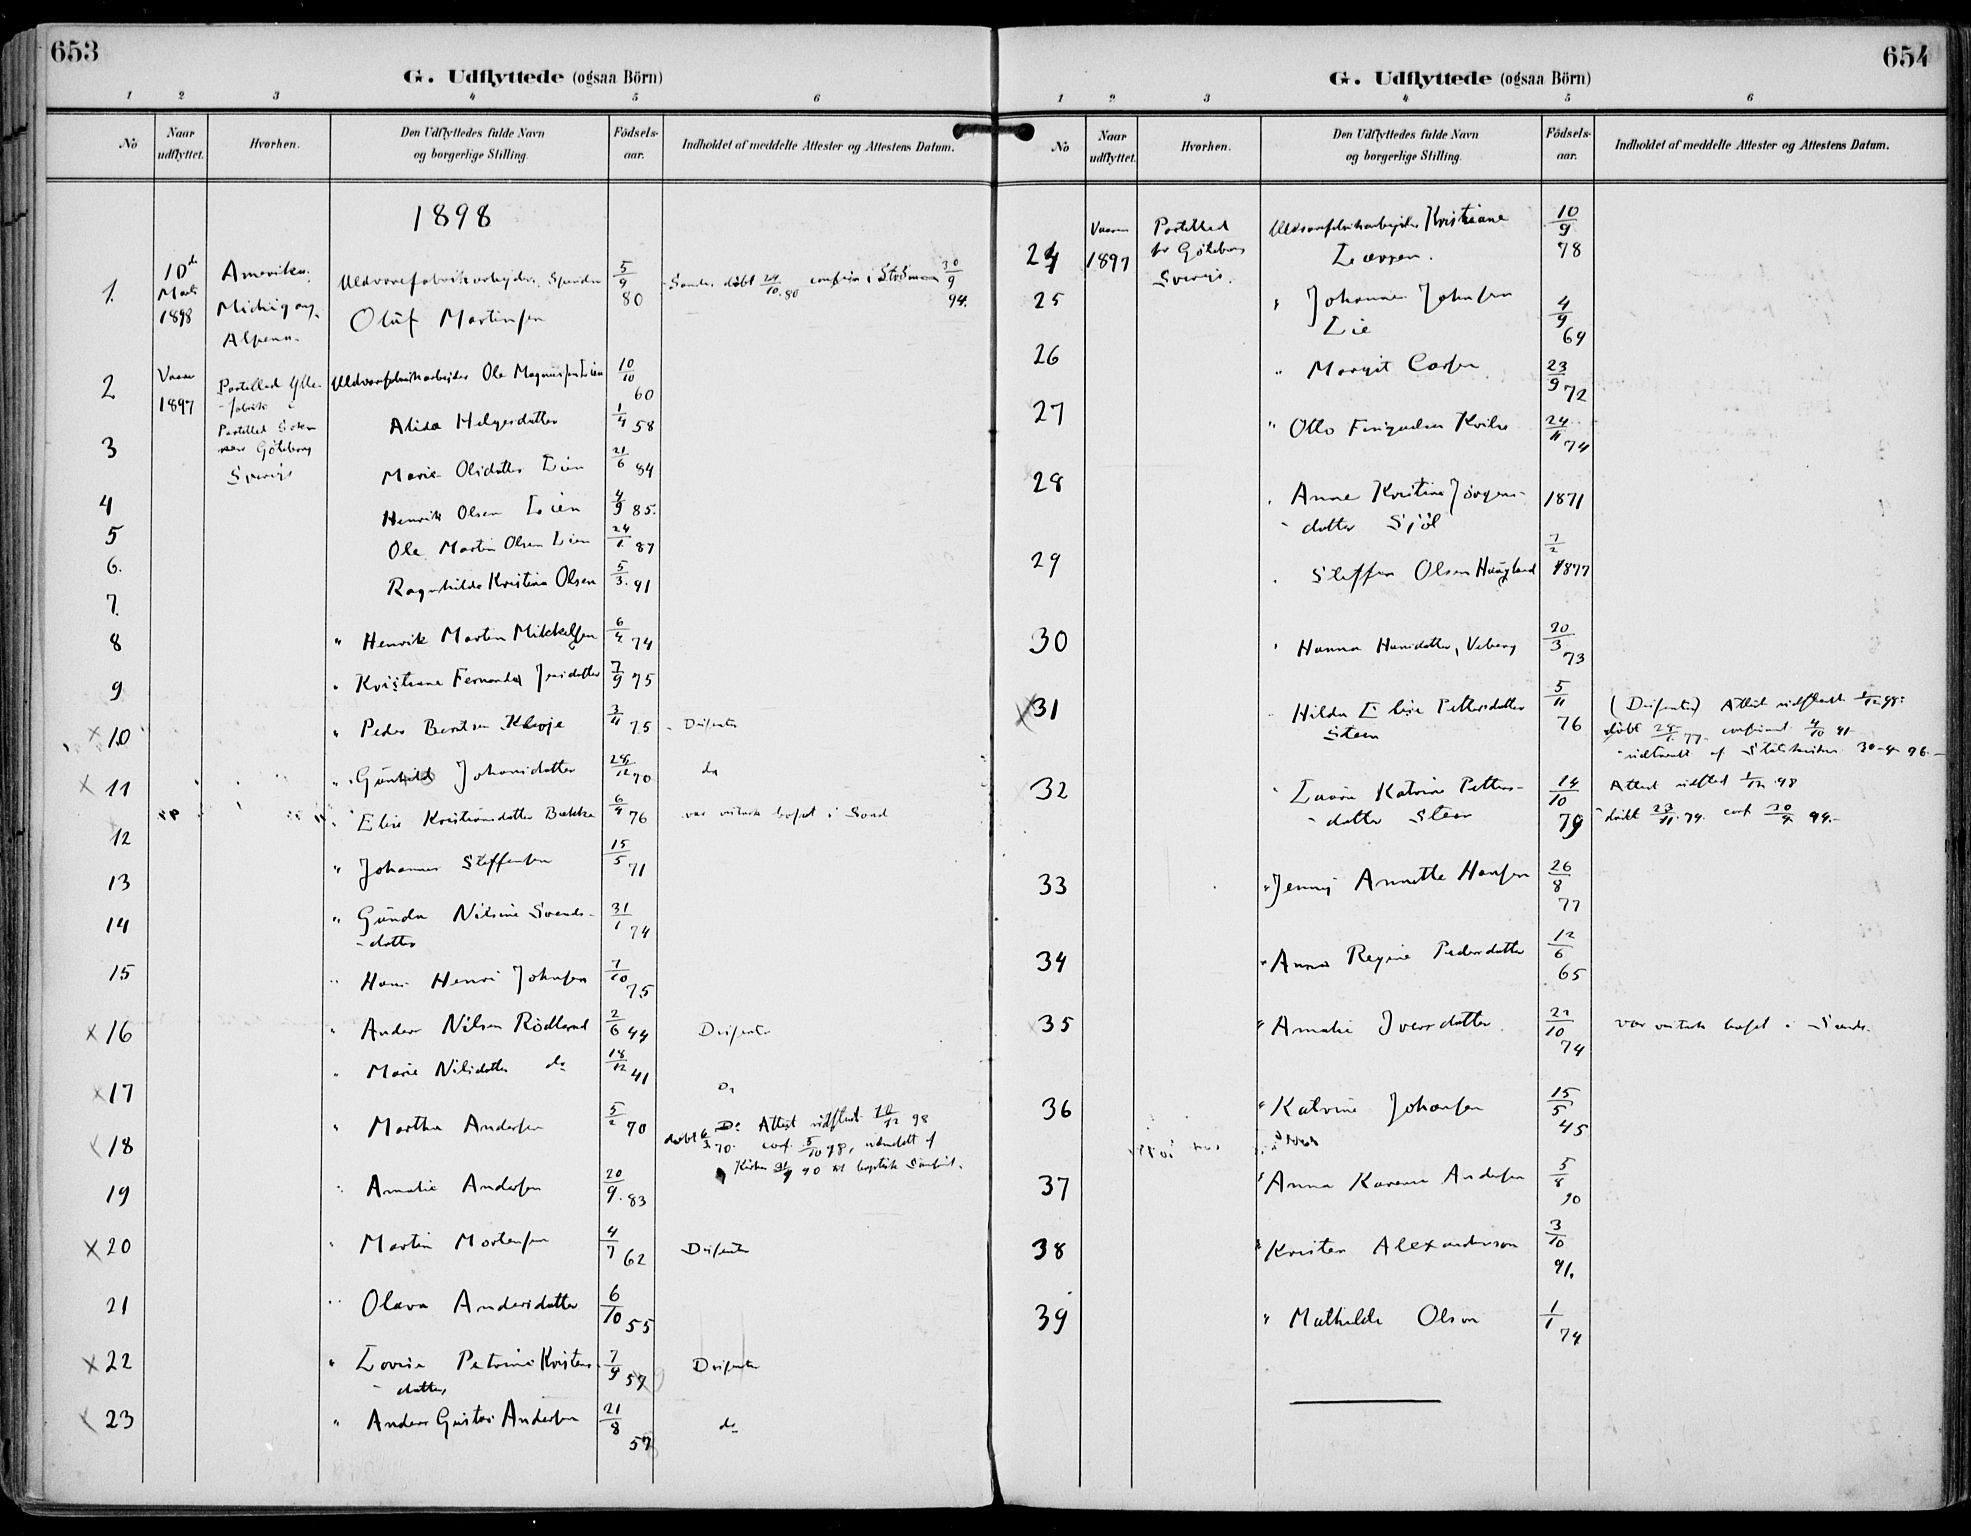 653
G. Udflyttede (ogsaa Börn)
1 2 3 4 5 6
No
Naar udflyttet.
Hvorhen.
Den Udflyttedes fulde Navn og borgerlige Stilling.
Födsels-aar.
Indholdet af meddelte Attester og Attestens Datum.
1898
1. 10de Marts 1898 Amerika. Michigan, Alpena. Uldvarefabrikarbejder, Spinder 5/9 80
Oluf Martinsen
döbt 24/10 80 30/9 94.
2 Vaaren 1897 Uldvarefabrikarbejder Ole Magnussen Lien 10/10 60
Göteborg
Sverige
3 Alida Helgesdatter 1/4 58
Marie Olsdatter Lien 21/6 84
4 Henrik Olsen Lien 4/9 85.
5 Ole Martin Olsen Lien 24/1 87
6. Ragnhilda Kristina Olsen 5/3. 91
7.
8 " Henrik Martin Mikkelsen 6/4 74
9 " Kristiane Fernanda Jensdatter 7/9 75
x 10 " Peder Berntsen Kleveje 3/11 75 - Dissenter
x 11 " Gunhild Johansdatter 24/12 70 do
12 " Elise Kristiansdatter Bakke 6/4 76 var vistnok bosat i Sand
13 " Johannes Steffensen 15/5 71
14 " Gunda Nilsine Svends-
-datter 31/1 74
15 " Hans Henri Johnsen 7/10 75
x 16 " Anders Nilsen Rödland 2/6 44 Dissenter
x 17 " Marie Nilsdatter do 18/12 41 Do
18 " Martha Andersen 5/2 70 Do Attest udstedt 10/12 98
19 " Amalie Andersen 20/9. 83
x 20 " Martin Mortensen 4/7 62 Dissenter
21 " Olava Andersdatter 6/10 55
x 22 " Lovise Petrine Kristens-
-datter, 7/9 57 Dissenter
23 " Anders Gustav Andersen 21/8 57 do
654
G. Udflyttede (ogsaa Börn)
1 2 3 4 5 6
No
Naar udflyttet.
Hvorhen.
Den Udflyttedes fulde Navn og borgerlige Stilling.
Födsels-aar.
Indholdet af meddelte Attester og Attestens Datum.
24 Vaaren 1897 Partilled pr Göteborg Sverige. Uldvarefabrikarbejder Kristiane
Larsen. 10/9 78
25 " Johannes Johnsen
Lie 4/9 69
26 " Margit Larsen 23/9 72
27 " Otto 24/11 74
28 " Anne Kristine Jörgens-
-datter Sjöl 1871
29 " Steffen Olsen Haugland 7/2 1877
30 " Hanna Hansdatter, Veberg 20/3 73
x 31 " Hilda Elise Pettersdatter
Steen 5/11 76 (Dissenter) Attest udstedt 1/12 98.
30-4-96.-
32 " Lovise Katrine Petters-
-datter Steen 14/10 79 Attest udsted 1/12 98
döbt 23/11. 79. conf 94.-
33 " Jenny Annette Hansen 26/8 77
34 " Anna Regine Pedersdatter 12/6 65
35 " Amalie Iversdatter 21/10 74 var vistnok bosat i Sande.
36 " Katrine Johansen 15/5 45
37 " Anna Karene Andersen 5/8 90
38 " Kristen Alexandersen 3/10 91.
39 " Mathilde Olsen 1/1 74